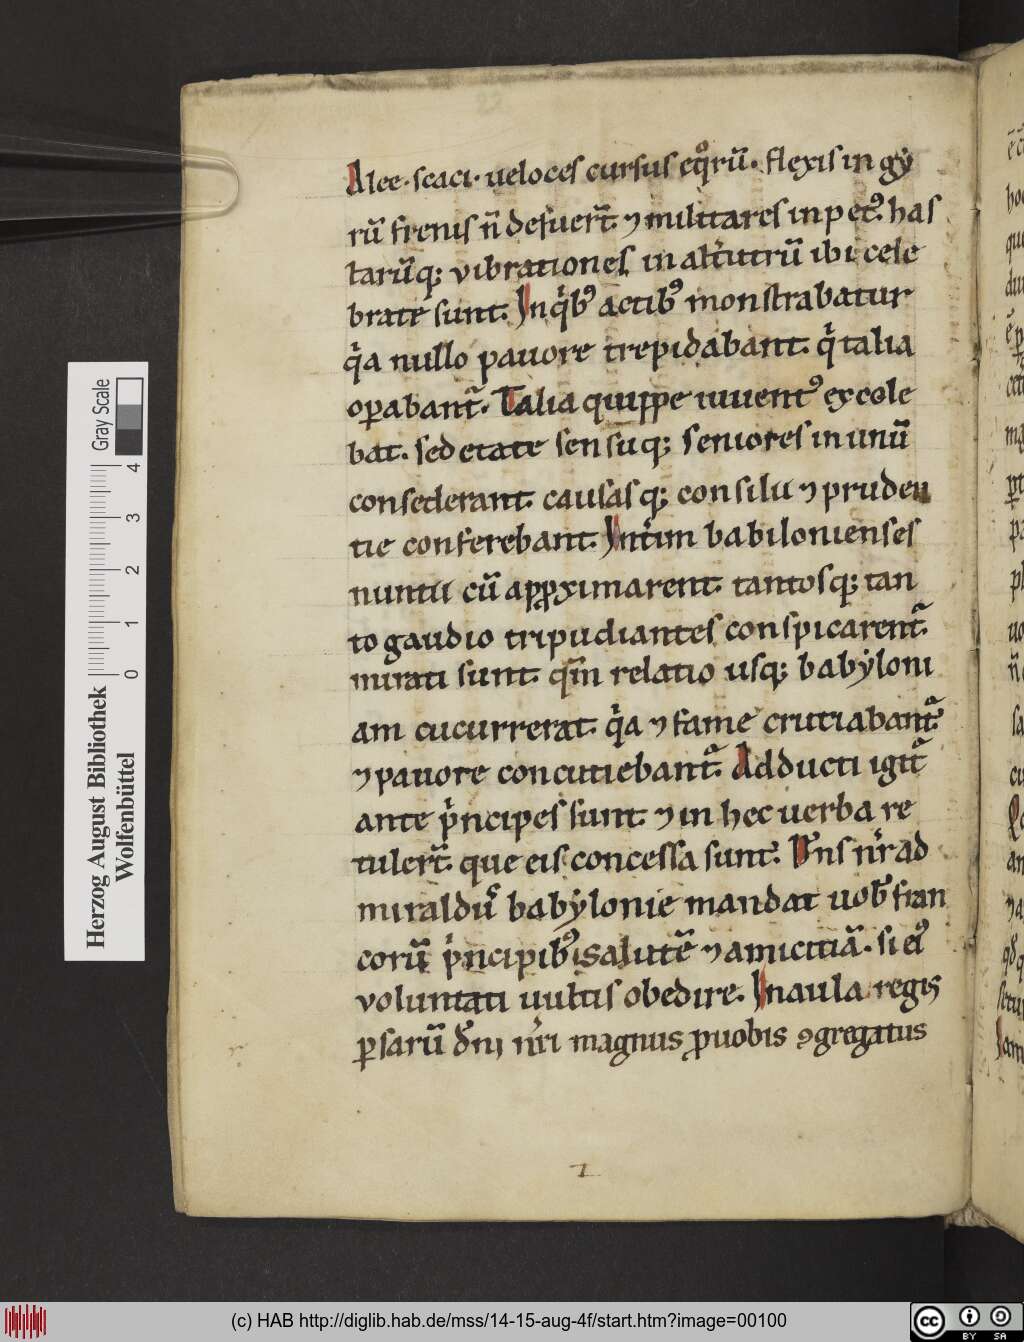 Alee · scaci · ueloces cursus eq̊rū · flexis in gẏ
rū frenis n̄ defuer̄t ⁊ militares inpet᷒ has
tarūq; vibrationes in alt̓utrū ibi cele
brate sunt. Inqͥb᷒ actib᷒ monstrabatur
qͥa nullo pauore trepidabant. qͥ talia
oꝑabant᷑. Talia quippe iuuent᷒ excole
bat. sed etate sensuq; seniores in unū
consederant causasq; consilii ⁊ pruden
tie conferebant. Int̓im babilonienses
nuntii cū apꝓximarent tantosq; tan
to gaudio tripudiantes conspicarent᷑
mirati sunt. qm̄ relatio usq; babẏloni
am cucurrerat qͥa ⁊ fame crutiabant᷑
⁊ pauore concutiebant᷑. Adducti igit᷑
ante pͥncipes sunt ⁊ in hec uerba re
tuler̄t que eis concessa sunt. Dn̄s nr̄ ad
miraldus babẏlonie mandat uob̄ fran
corū pͥncipib᷒ salutē ⁊ amicitiā. si ei᷒
voluntati uultis obedire. In aula regis
ꝑsarū dn̄i nr̄i magnus ꝓuobis ꝯgregatus
Herzog August Bibliothek
Wolfenbüttel
0 1 2 3 4
Gray Scale
(c) HAB http://diglib.hab.de/mss/14-15-aug-4f/start.htm?image=00100
cc BY SA